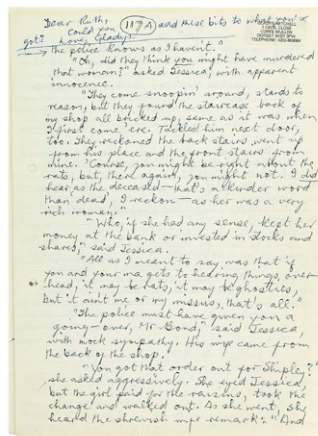 Dear Ruth, could you and these bits to what you've
got? 117A
love, Gladys.
GLADYS MITCHELL
1 CECIL CLOSE
CORFE MULLEN
DORSET BH21 3PW
TELEPHONE:
the police knows as I haven't."
"Oh, did they think you might have murdered
that woman?" asked Jessica, with apparent
innocence.
"They come snoopin' around, stands to
reason, but they found the staircase back of
my shop all bricked up, same as it was when
I first come 'ere. Tackled him next door,
too. They reckoned the back stairs went up
from his place and the front stairs from
mine. 'Course, you might be right about the
rats, but, there again, you might not. I did
hear as the deceased – that's a kinder word
than 'dead', I reckon – as her was a very
rich woman."
"Who, if she had any sense, kept her
money at the bank or invested in stocks and
shares," said Jessica.
"All as I meant to say was that if
you and your ma gets to hearing things, over-
head, it may be rats, it may be ghosties,
but it ain't me or my missus, that's all."
"The police must have given you a
going-over, Mr Bond," said Jessica,
with mock sympathy. His wife came from
the back of the shop.
"You got that order out for Shipley?"
she asked aggressively. She eyed Jessica,
but the girl paid for the raisins, took the
change and walked out. As she went, she
heard the shrewish wife remark: "And